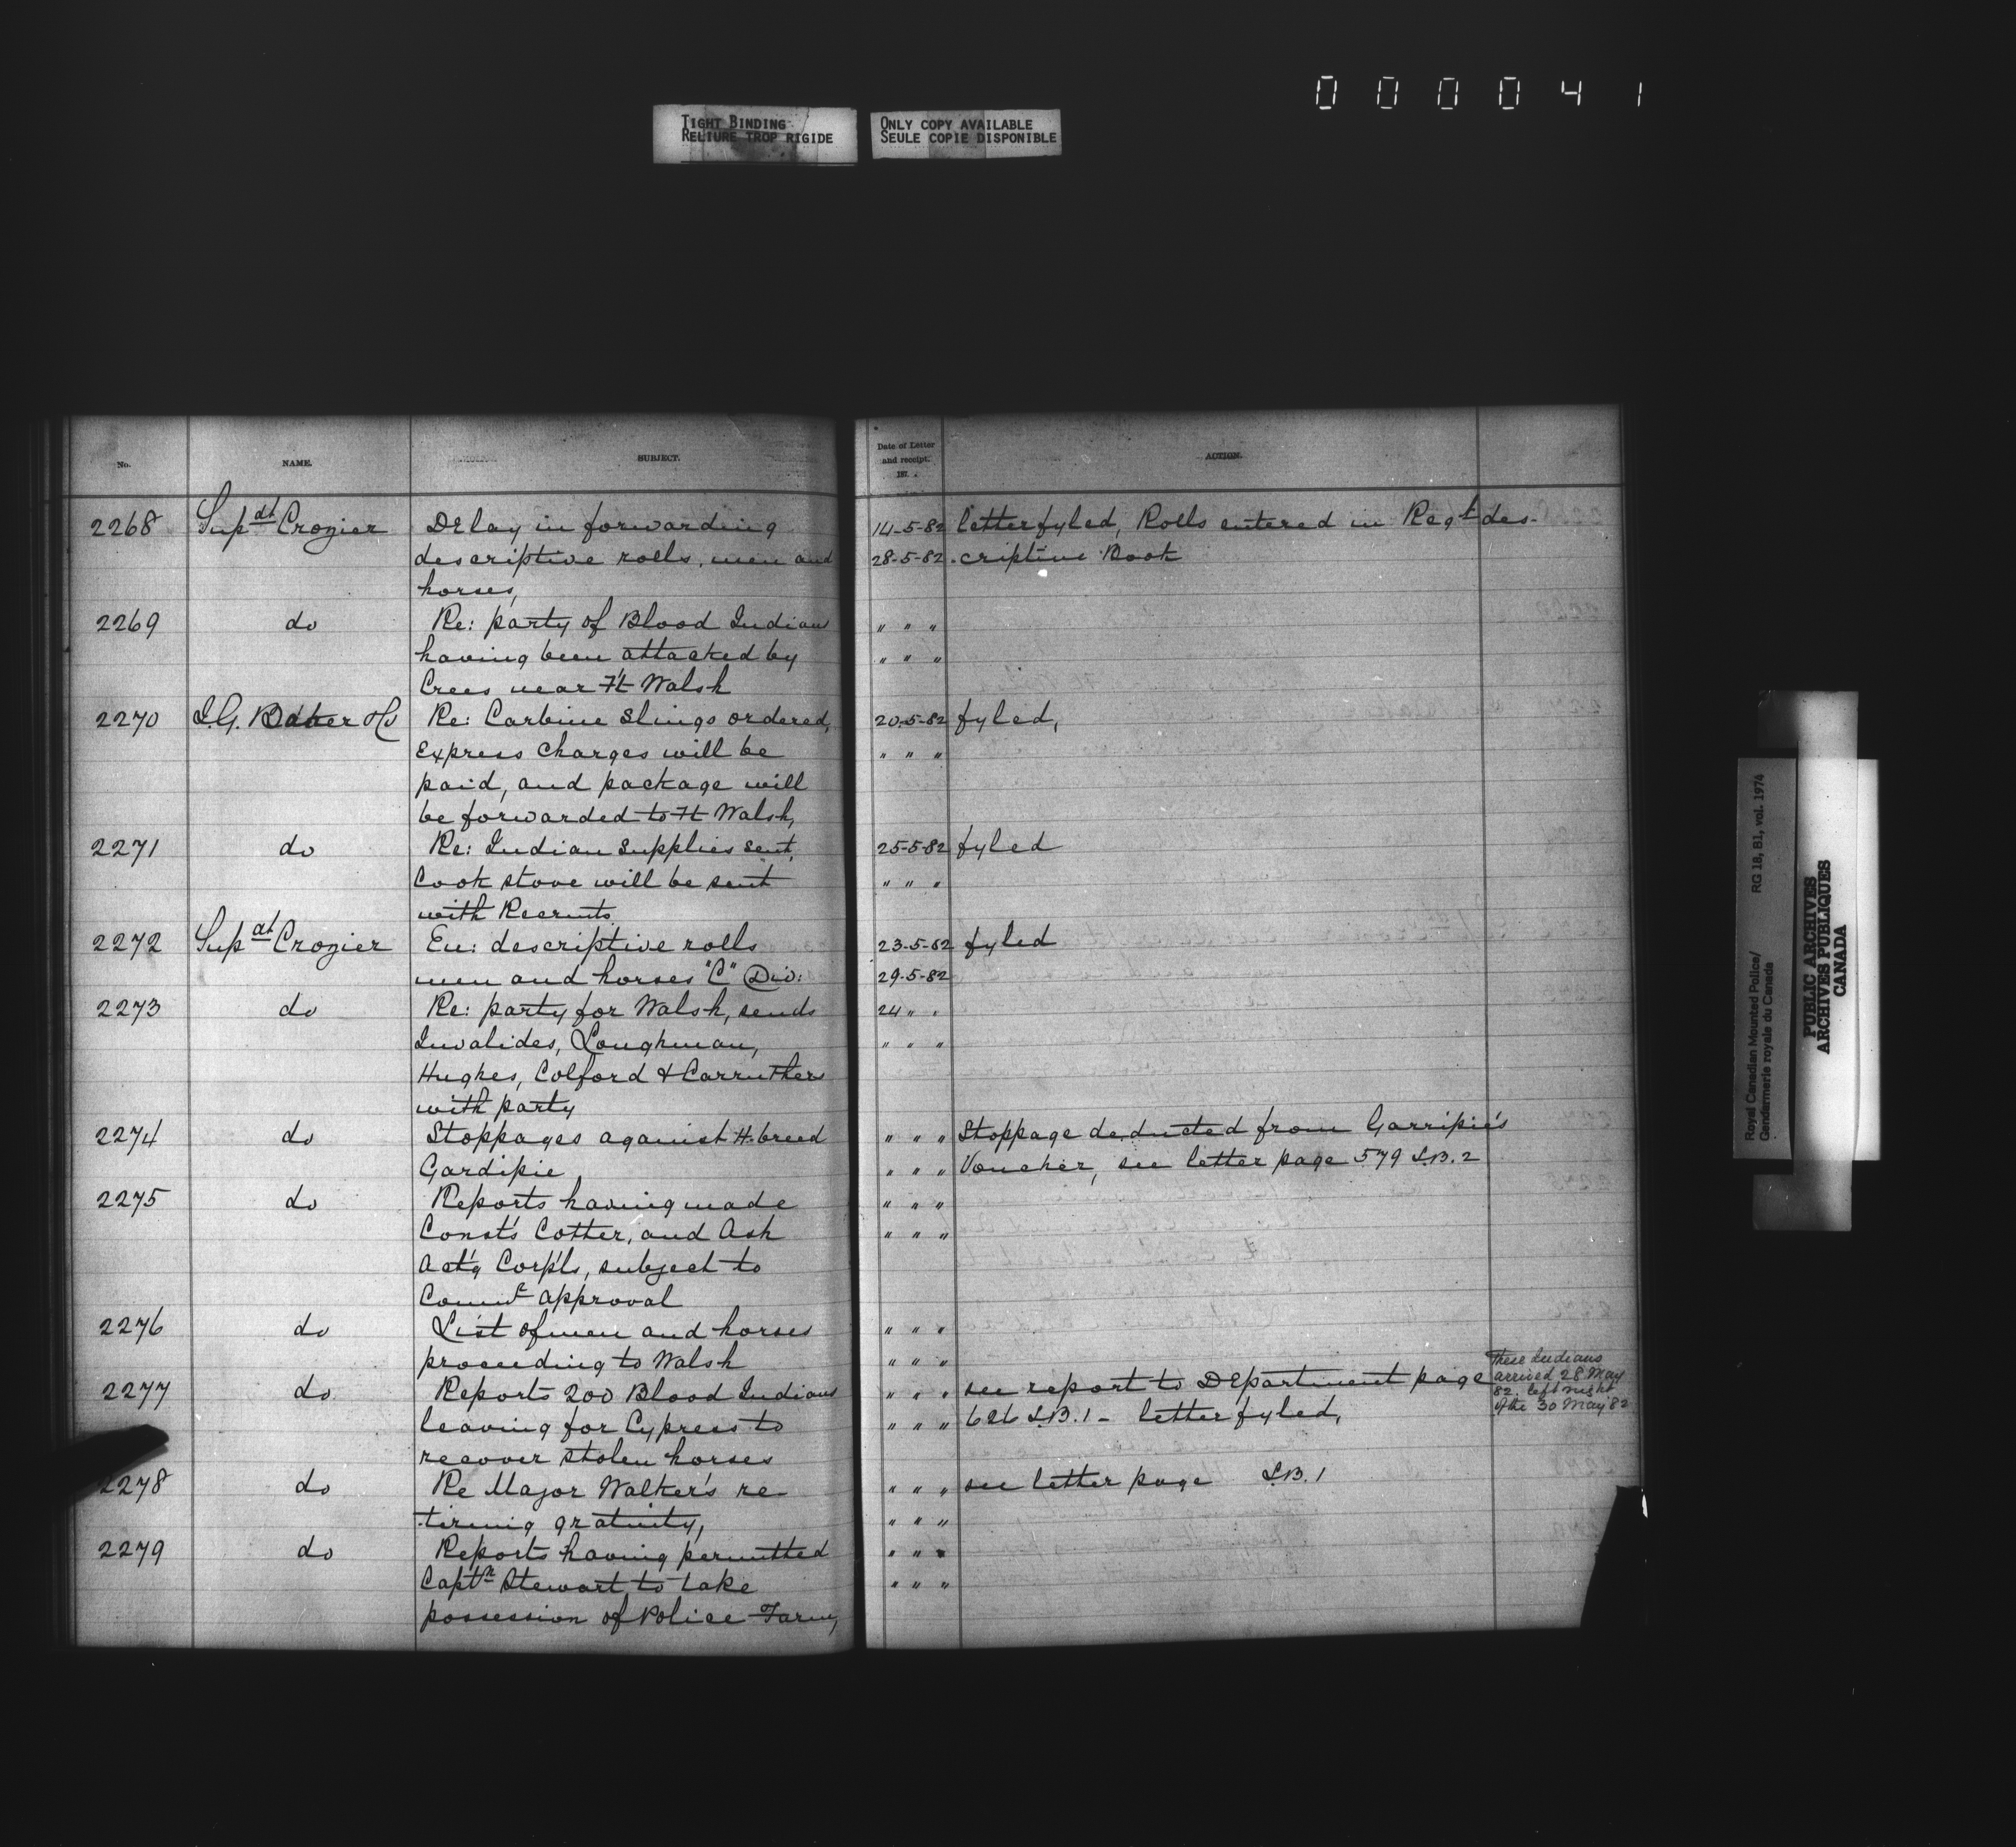 0 0 0 0 4 1
TIGHT BINDING
RELIURE TROP RIGIDE
ONLY COPY AVAILABLE
SEULE COPIE DISPONIBLE
No. NAME. SUBJECT. Date of Letter and receipt. 187 . ACTION.
2268 Supdt Crozier Delay in forwarding 14-5-82 letter fyled, Rolls entered in Regt des-
descriptive rolls, men and 28-5-82 criptive Book
horses,
2269 do Re: party of Blood Indians " " "
having been attacked by " " "
Crees near Ft Walsh
2270 I.G. Baker &Co Re: Carbine Slings ordered, 20-5-82 fyled,
Express Charges will be " " "
paid, and package will
be forwarded to Ft Walsh,
2271 do Re: Indian Supplies sent, 25-5-82 fyled
Cook stove will be sent " " "
with Recruits
2272 Supdt Crozier En: descriptive rolls 23-5-82 fyled
men and horses "C" Div: 29-5-82
2273 do Re: party for Walsh, sends 24 " "
Invalides, Loughman, " " "
Hughes, Colford & Carruthers
with party
2274 do Stoppages against H. breed " " " Stoppage deducted from Garripie's
Gardipie " " " Voucher, see letter page 579 L.B. 2
2275 do Reports having made " " "
Const's Cotter, and Ash " " "
Act'g Corp'ls, subject to
Commr approval
2276 do List of men and horses " " "
proceeding to Walsh " " "
2277 do Reports 200 Blood Indians " " " see report to Department page
leaving for Cypress to " " " 626 L.B. 1 - letter fyled,
recover stolen horses
These Indians
arrived 28 May
82. left night
of the 30 May '82
2278 do Re Major Walker's re- " " " see letter page L.B. 1
tiring gratuity, " " "
2279 do Reports having permitted " " "
Captn Stewart to take " " "
possession of Police Farm,
Royal Canadian Mounted Police/ RG 18, B1, vol. 1974
Gendarmerie royale du Canada
PUBLIC ARCHIVES
ARCHIVES PUBLIQUES
CANADA